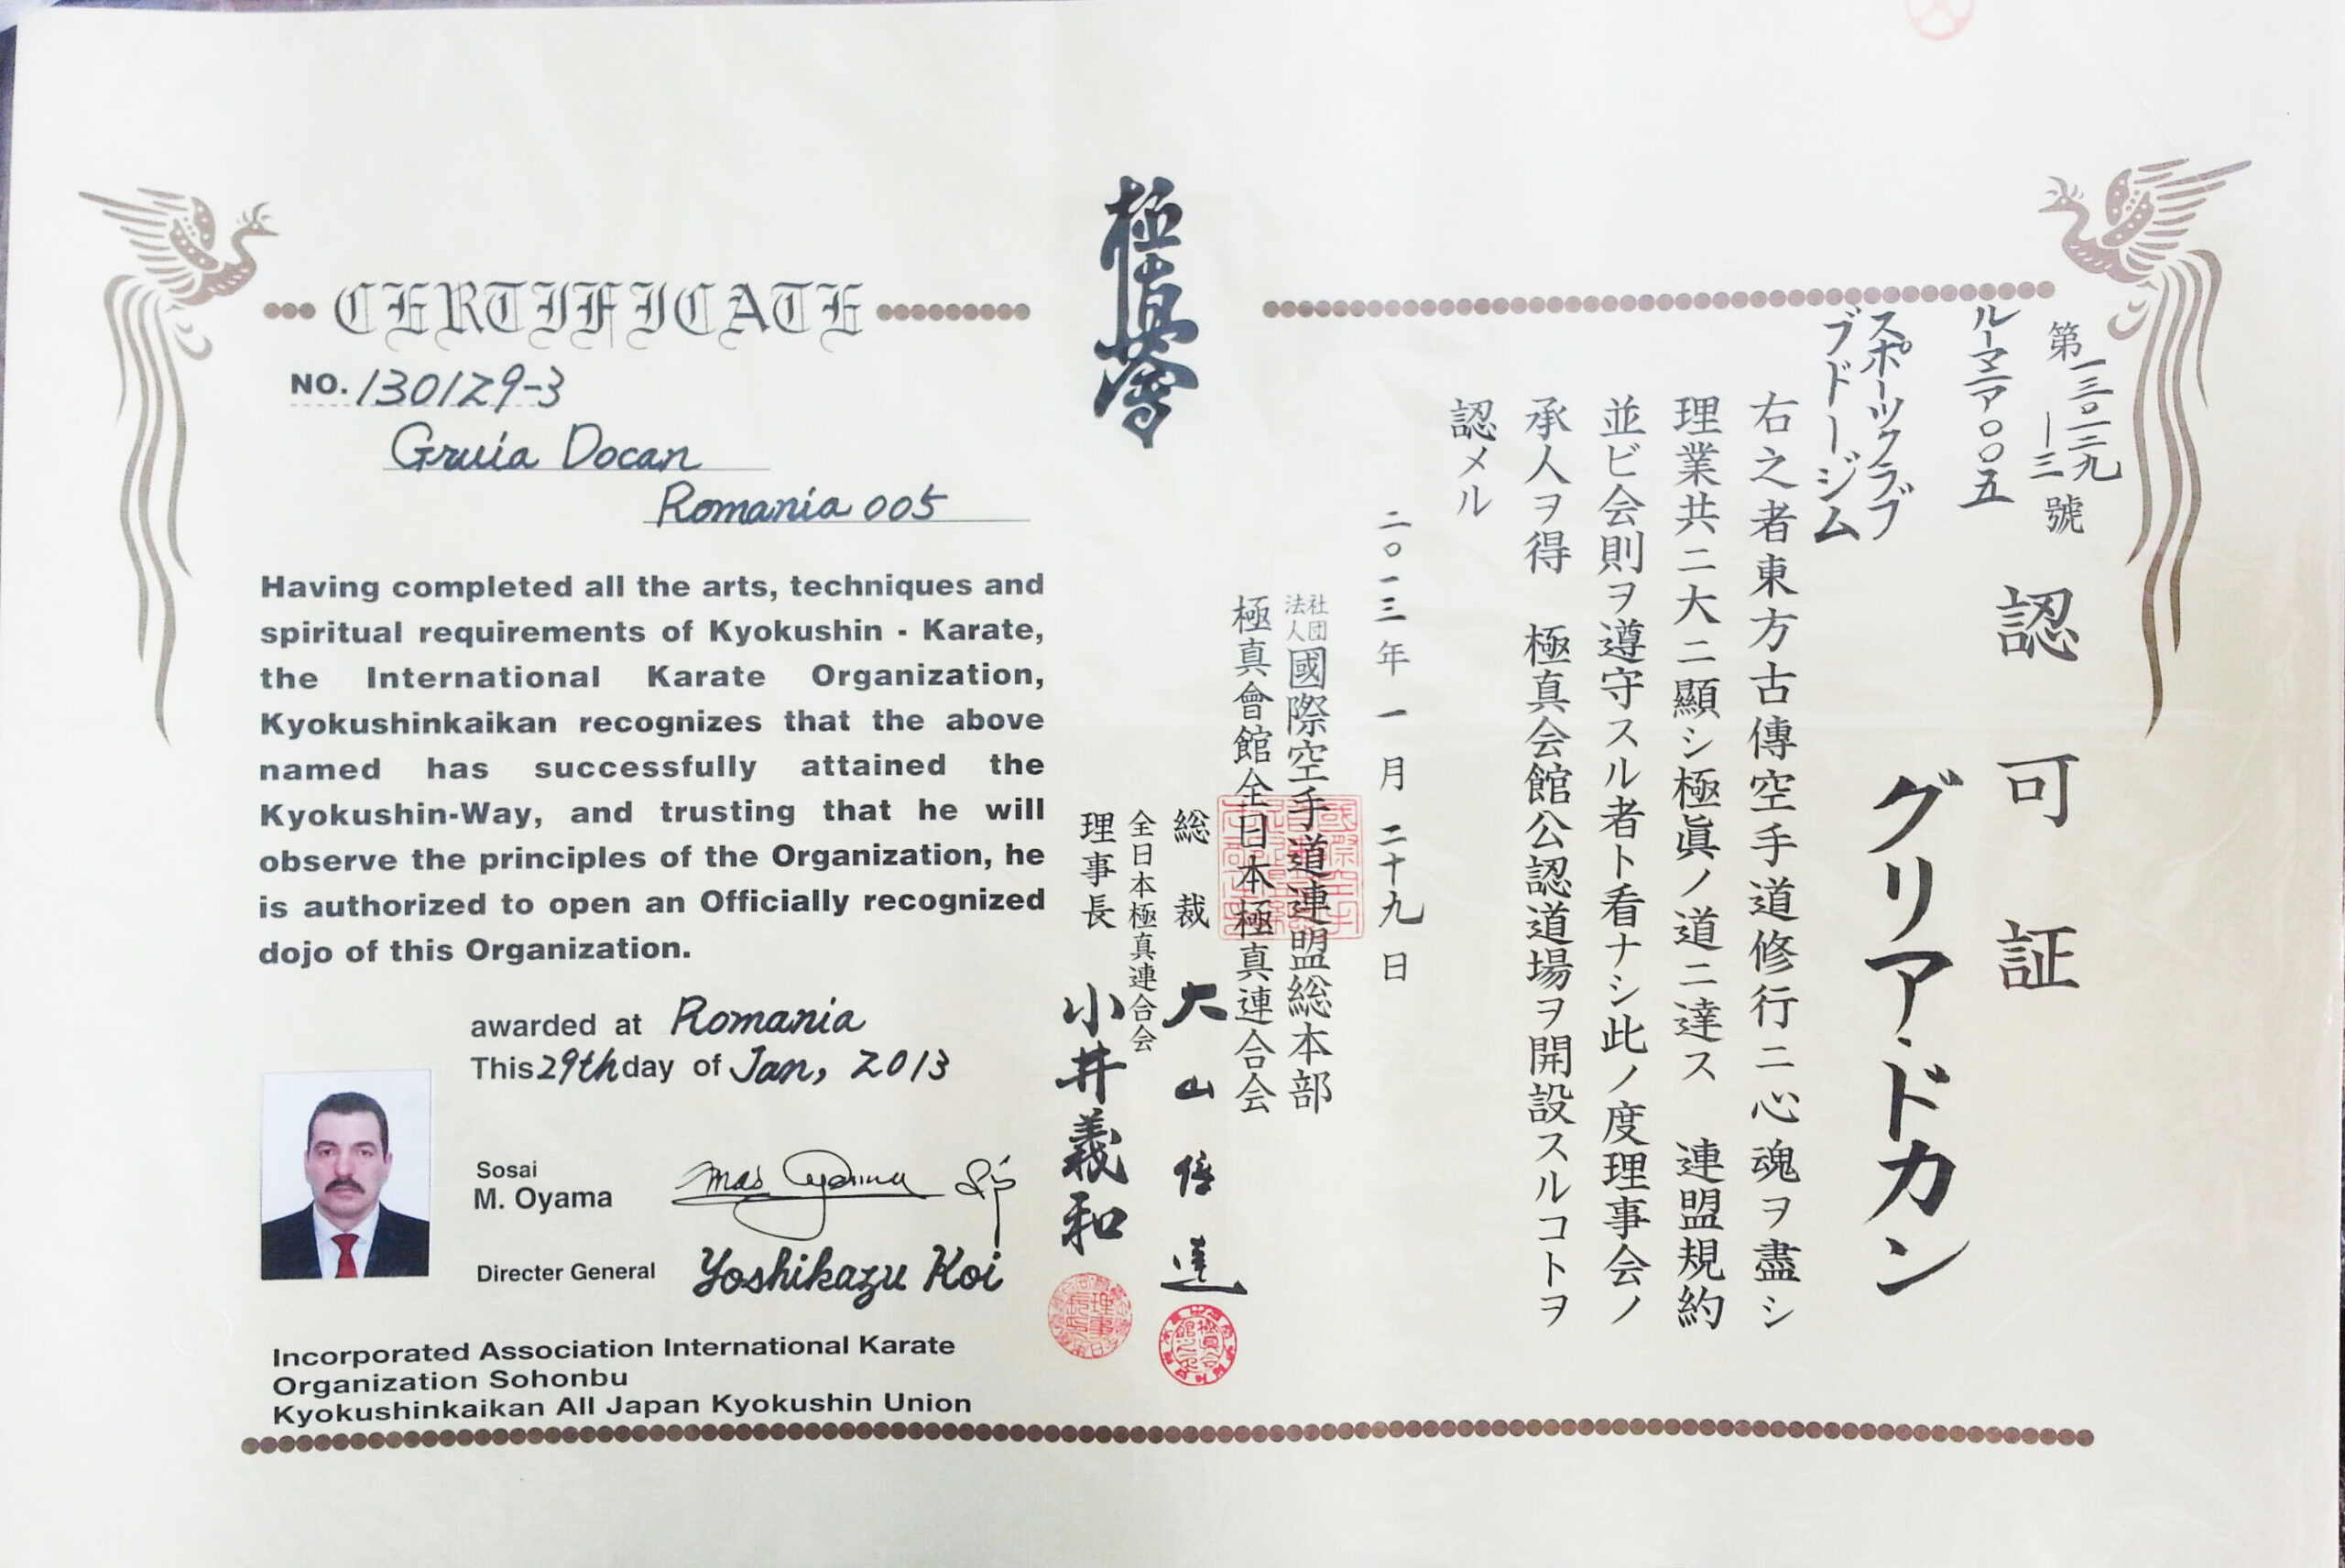 CERTIFICATE
NO. 130129-3
Gruia Docan
Romania 005
Having completed all the arts, techniques and
spiritual requirements of Kyokushin - Karate,
the International Karate Organization,
Kyokushinkaikan recognizes that the above
named has successfully attained the
Kyokushin-Way, and trusting that he will
observe the principles of the Organization, he
is authorized to open an Officially recognized
dojo of this Organization.
awarded at Romania
This 29th day of Jan, 2013
Sosai
M. Oyama
Mas Oyama
Directer General Yoshikazu Koi
Incorporated Association International Karate
Organization Sohonbu
Kyokushinkaikan All Japan Kyokushin Union
極真會
第一三〇一二九
-三號
認可証
ルーマニア〇〇五
グリア・ドカン
スポーツクラブ
ブドージム
右之者東方古傳空手道修行ニ心魂ヲ盡シ
理業共ニ大ニ顯シ極眞ノ道ニ達ス 連盟規約
並ビ会則ヲ遵守スル者ト看ナシ此ノ度理事会ノ
承人ヲ得 極真会館公認道場ヲ開設スルコトヲ
認メル
二〇一三年一月二十九日
社団法人國際空手道連盟総本部
極真會館全日本極真連合会
総裁 大山倍達
全日本極真連合会
理事長 小井義和